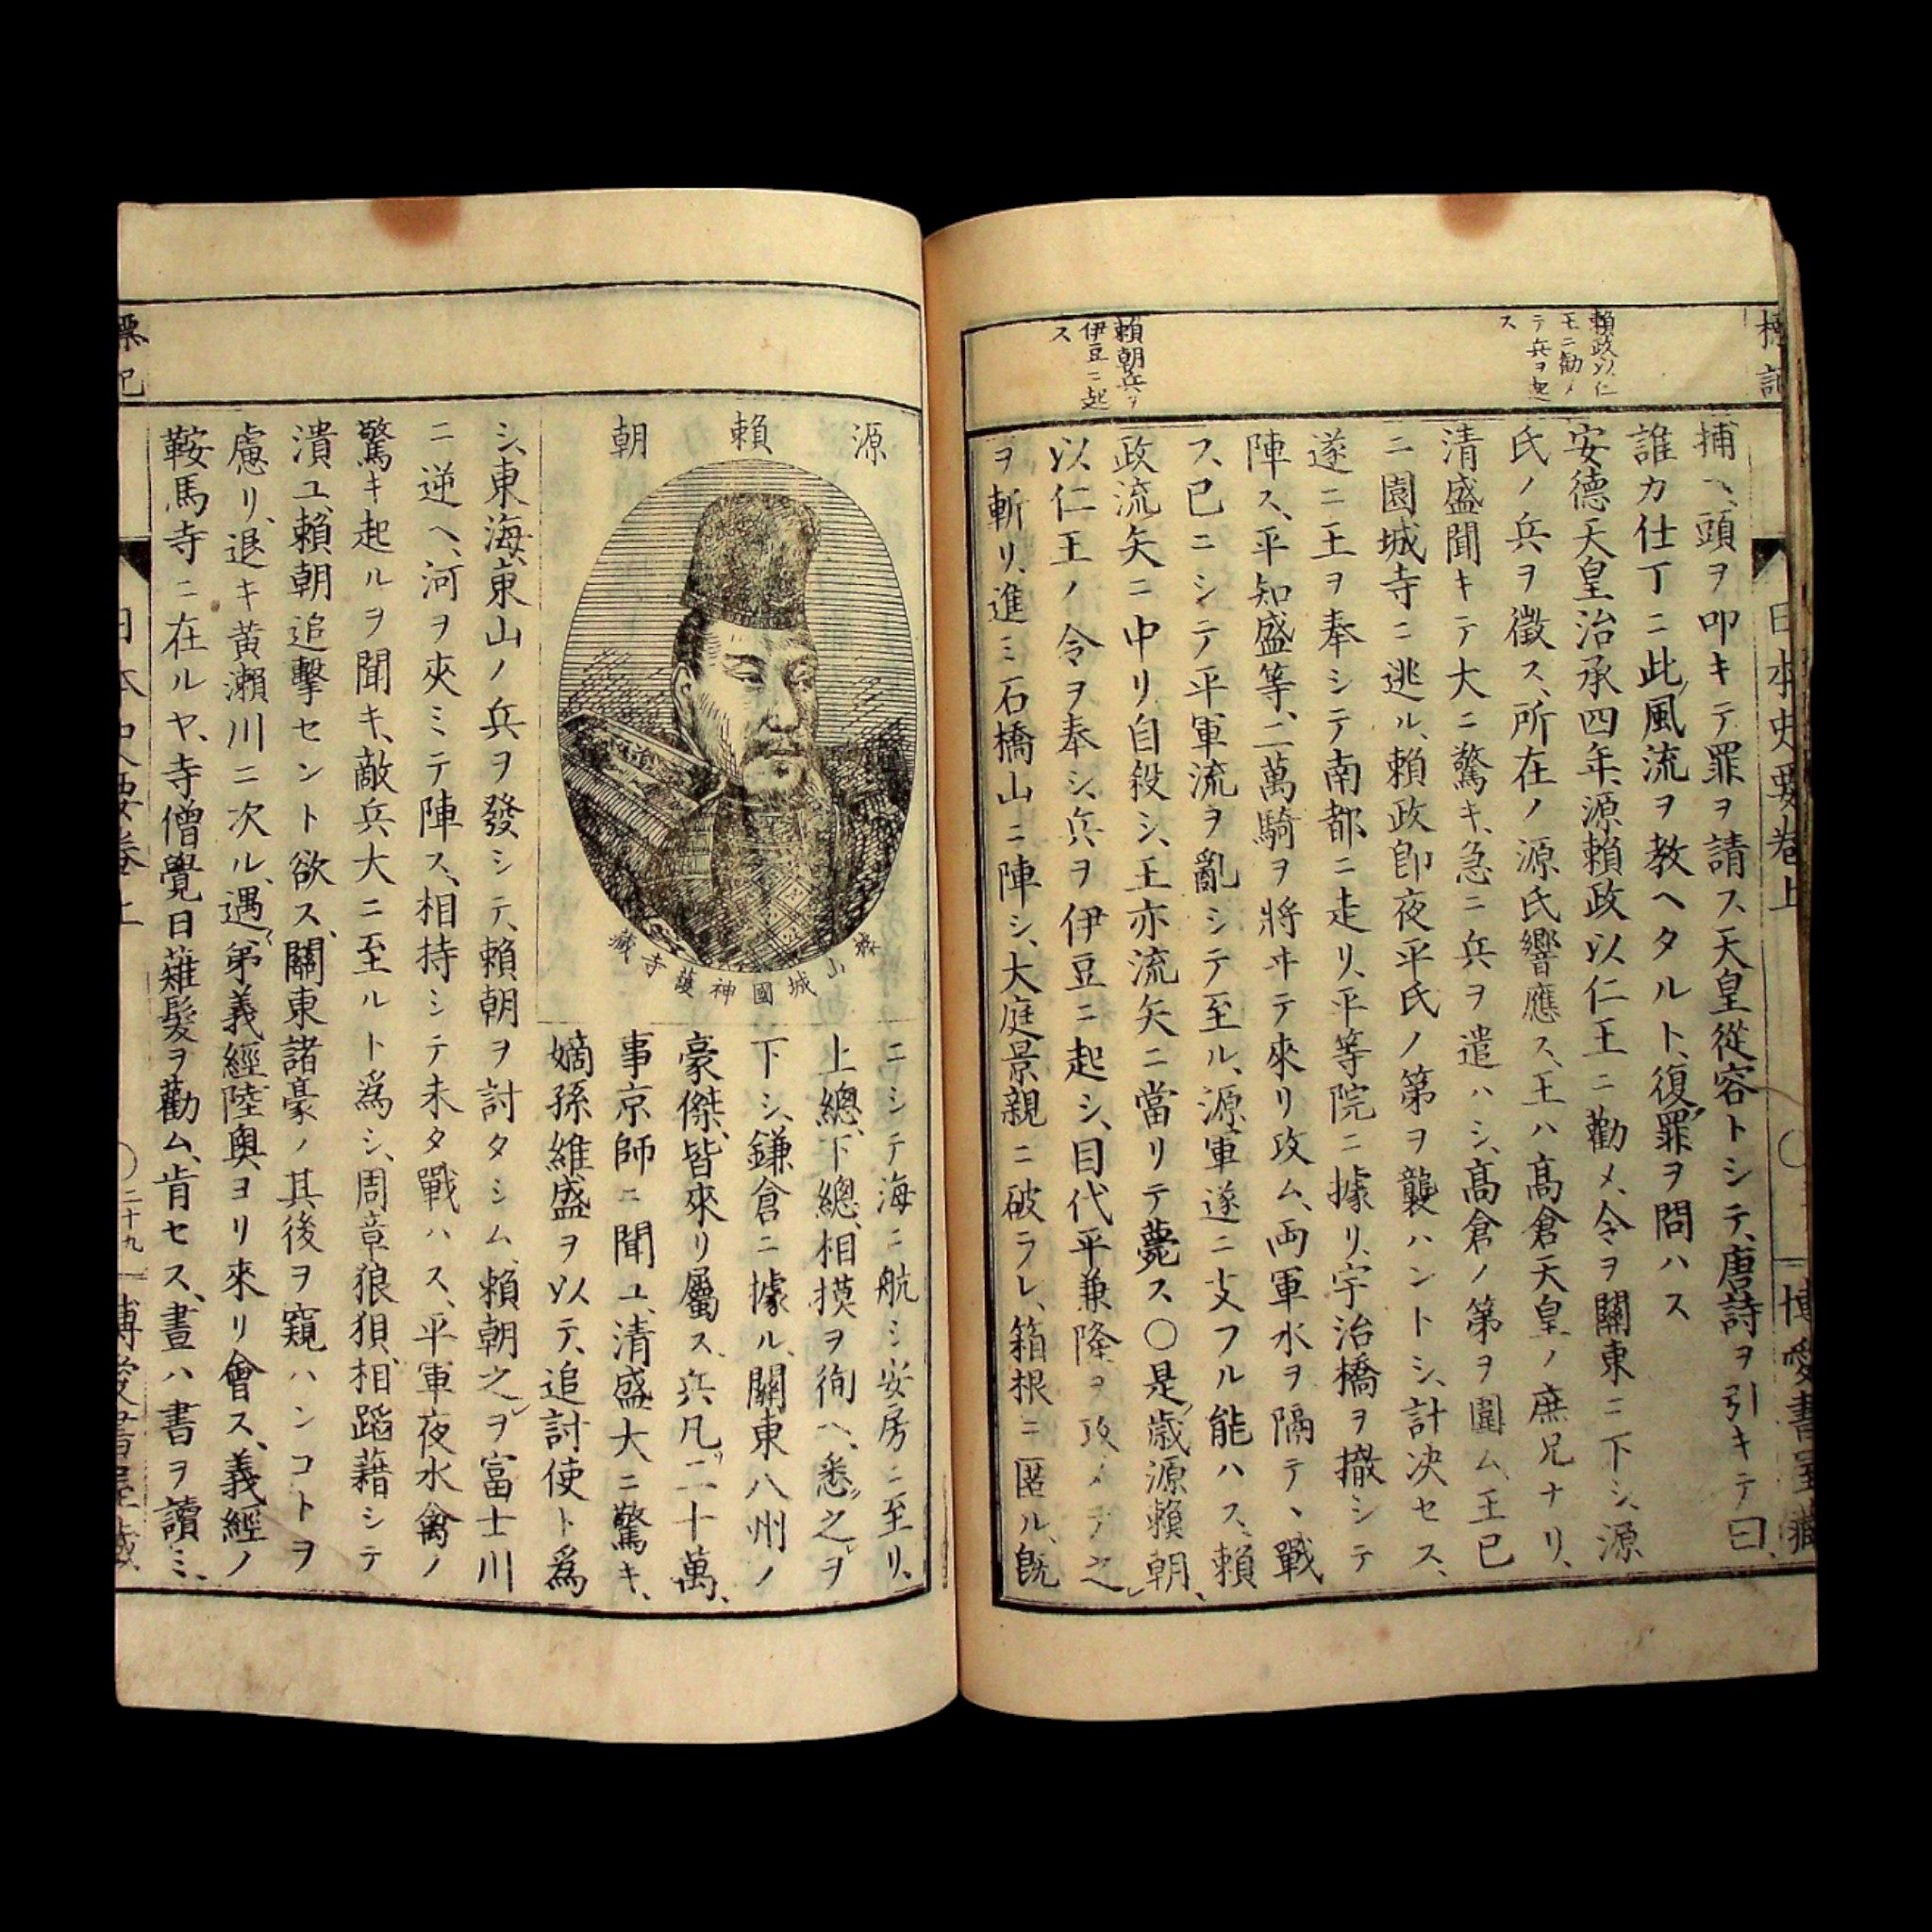 標記
頼政以仁
王ニ勸メ
テ兵ヲ起
ス
頼朝兵ヲ
伊豆ニ起
ス
日本史要卷上
博愛書屋藏
捕ヘ、頭ヲ叩キテ罪ヲ請フ、天皇從容トシテ、唐詩ヲ引キテ曰、
誰カ仕丁ニ此風流ヲ教ヘタルト、復罪ヲ問ハス
安德天皇治承四年、源賴政以仁王ニ勸メ、令ヲ關東ニ下シ、源
氏ノ兵ヲ徵ス、所在ノ源氏響應ス、王ハ高倉天皇ノ庶兄ナリ、
清盛聞キテ大ニ驚キ、急ニ兵ヲ遣ハシ、高倉ノ第ヲ圍ム、王已
ニ園城寺ニ逃ル、賴政卽夜平氏ノ第ヲ襲ハントシ、計決セス、
遂ニ王ヲ奉シテ南都ニ走リ、平等院ニ據リ、宇治橋ヲ撤シテ
陣ス、平知盛等、二萬騎ヲ將ヰテ來リ攻ム、両軍水ヲ隔テヽ戰
フ、已ニシテ平軍流ヲ亂シテ至ル、源軍遂ニ支フル能ハス、賴
政流矢ニ中リ自殺シ、王亦流矢ニ當リテ薨ス〇是歳源賴朝、
以仁王ノ令ヲ奉シ、兵ヲ伊豆ニ起シ、目代平兼隆ヲ攻メテ之
ヲ斬リ、進ミ石橋山ニ陣シ、大庭景親ニ破ラレ、箱根ニ匿ル、既
源賴朝
山城國神護寺藏
ニシテ海ニ航シ安房ニ至リ、
上總、下總、相摸ヲ徇ヘ、悉之ヲ
下シ、鎌倉ニ據ル、關東八州ノ
豪傑、皆來リ屬ス、兵凡二十萬、
事京師ニ聞ユ、清盛大ニ驚キ、
嫡孫維盛ヲ以テ、追討使ト爲
シ、東海東山ノ兵ヲ發シテ、賴朝ヲ討タシム、賴朝之ヲ富士川
ニ逆ヘ、河ヲ夾ミテ陣ス、相持シテ未タ戰ハス、平軍夜水禽ノ
驚キ起ルヲ聞キ、敵兵大ニ至ルト爲シ、周章狼狽、相蹈藉シテ
潰ユ、賴朝追擊セント欲ス、關東諸豪ノ其後ヲ窺ハンコトヲ
慮リ、退キ黄瀨川ニ次ル、遇第義經陸奥ヨリ來リ會ス、義經ノ
鞍馬寺ニ在ルヤ、寺僧覺日薙髮ヲ勸ム、肯セス、晝ハ書ヲ讀ミ、
標記
日本史要卷上
〇二十九
博愛書屋藏